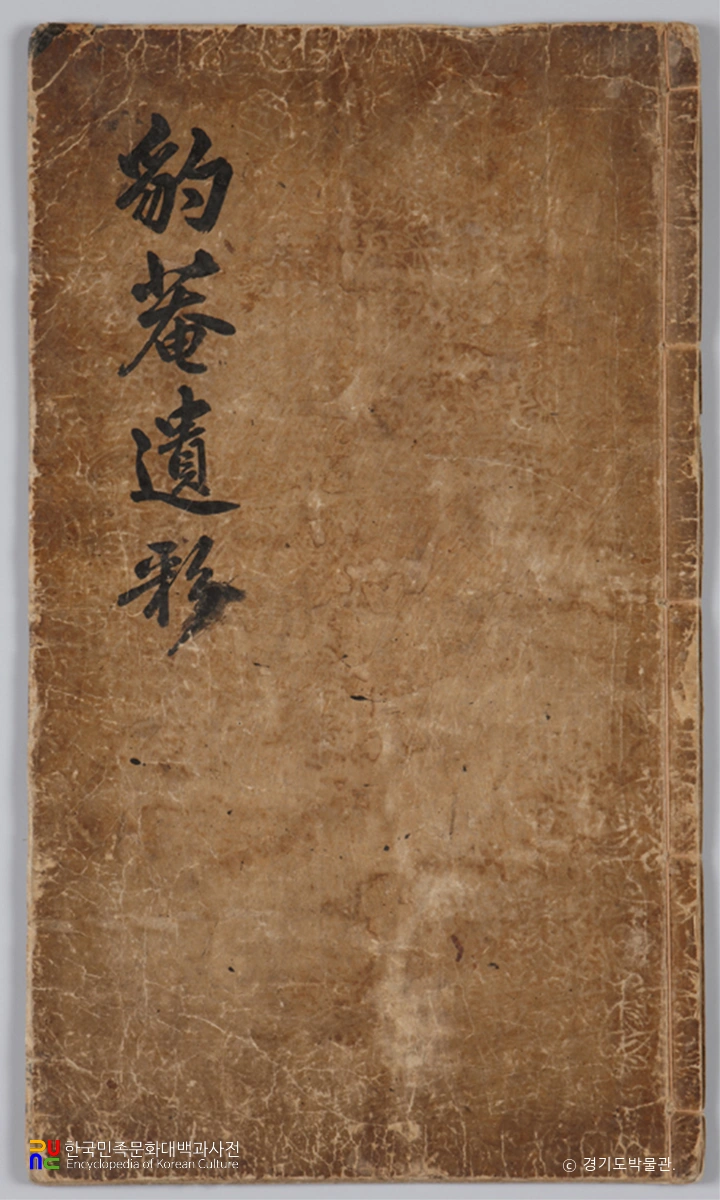 豹菴遺彩
한국민족문화대백과사전
Encyclopedia of Korean Culture
© 경기도박물관.